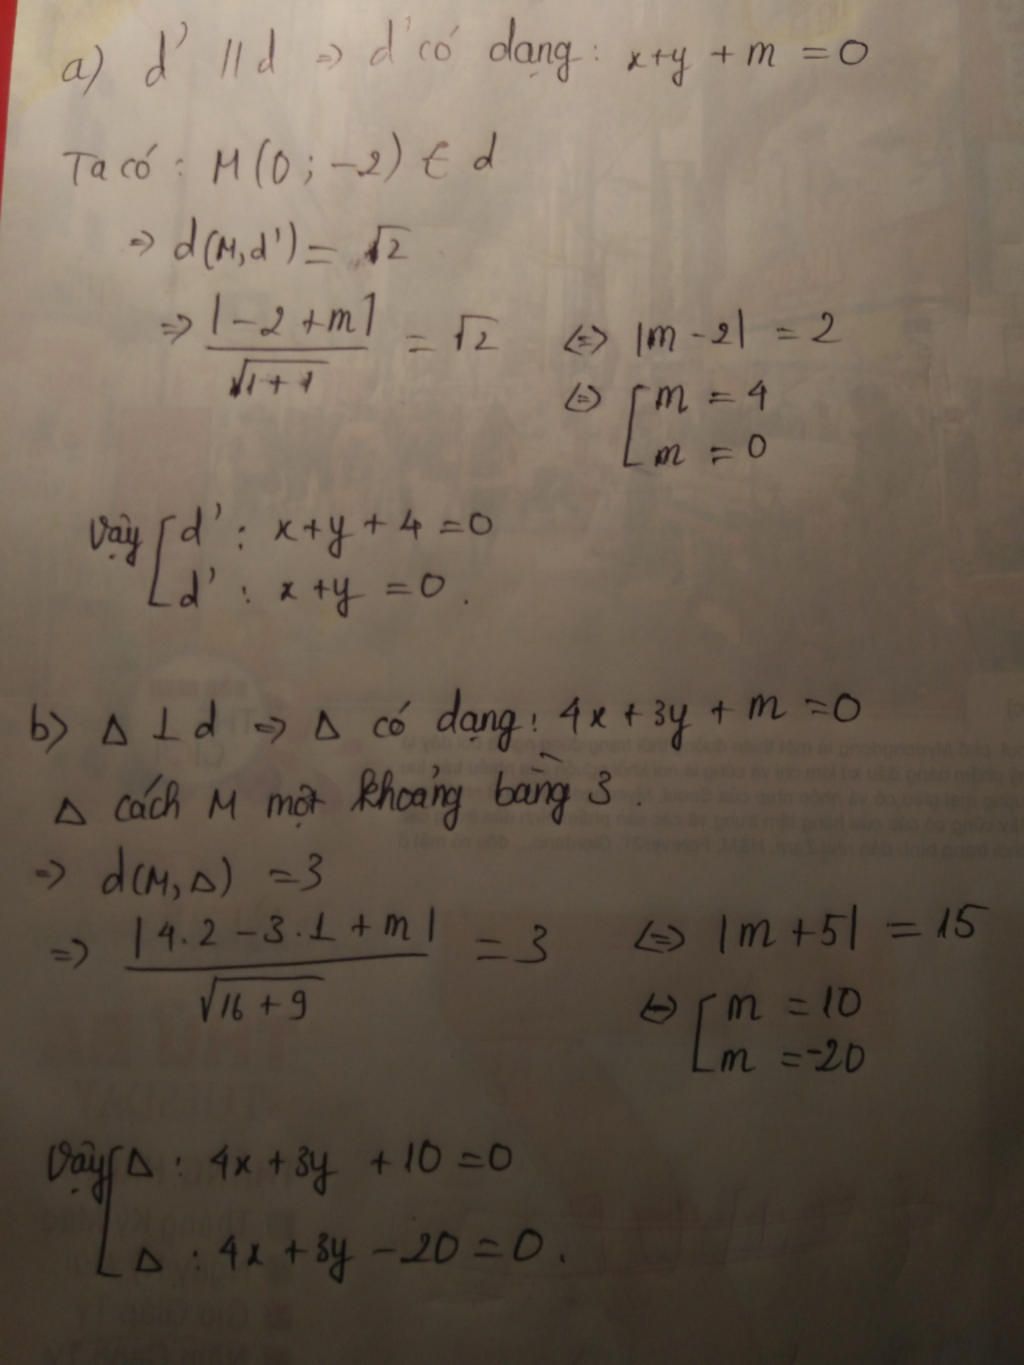 a) d' // d => d' có dạng: x+y + m = 0
Ta có: M(0; -2) ∈ d
=> d(M,d') = √2
=> |-2 + m| / √1+1 = √2 <=> |m - 2| = 2
<=> [ m = 4
m = 0
Vậy [ d': x+y + 4 = 0
d': x+y = 0.
b) Δ ⊥ d => Δ có dạng: 4x + 3y + m = 0
Δ cách M một khoảng bằng 3.
=> d(M, Δ) = 3
=> |4.2 - 3.1 + m| / √16 + 9 = 3 <=> |m + 5| = 15
<=> [ m = 10
m = -20
Vậy [ Δ: 4x + 3y + 10 = 0
Δ: 4x + 3y - 20 = 0.